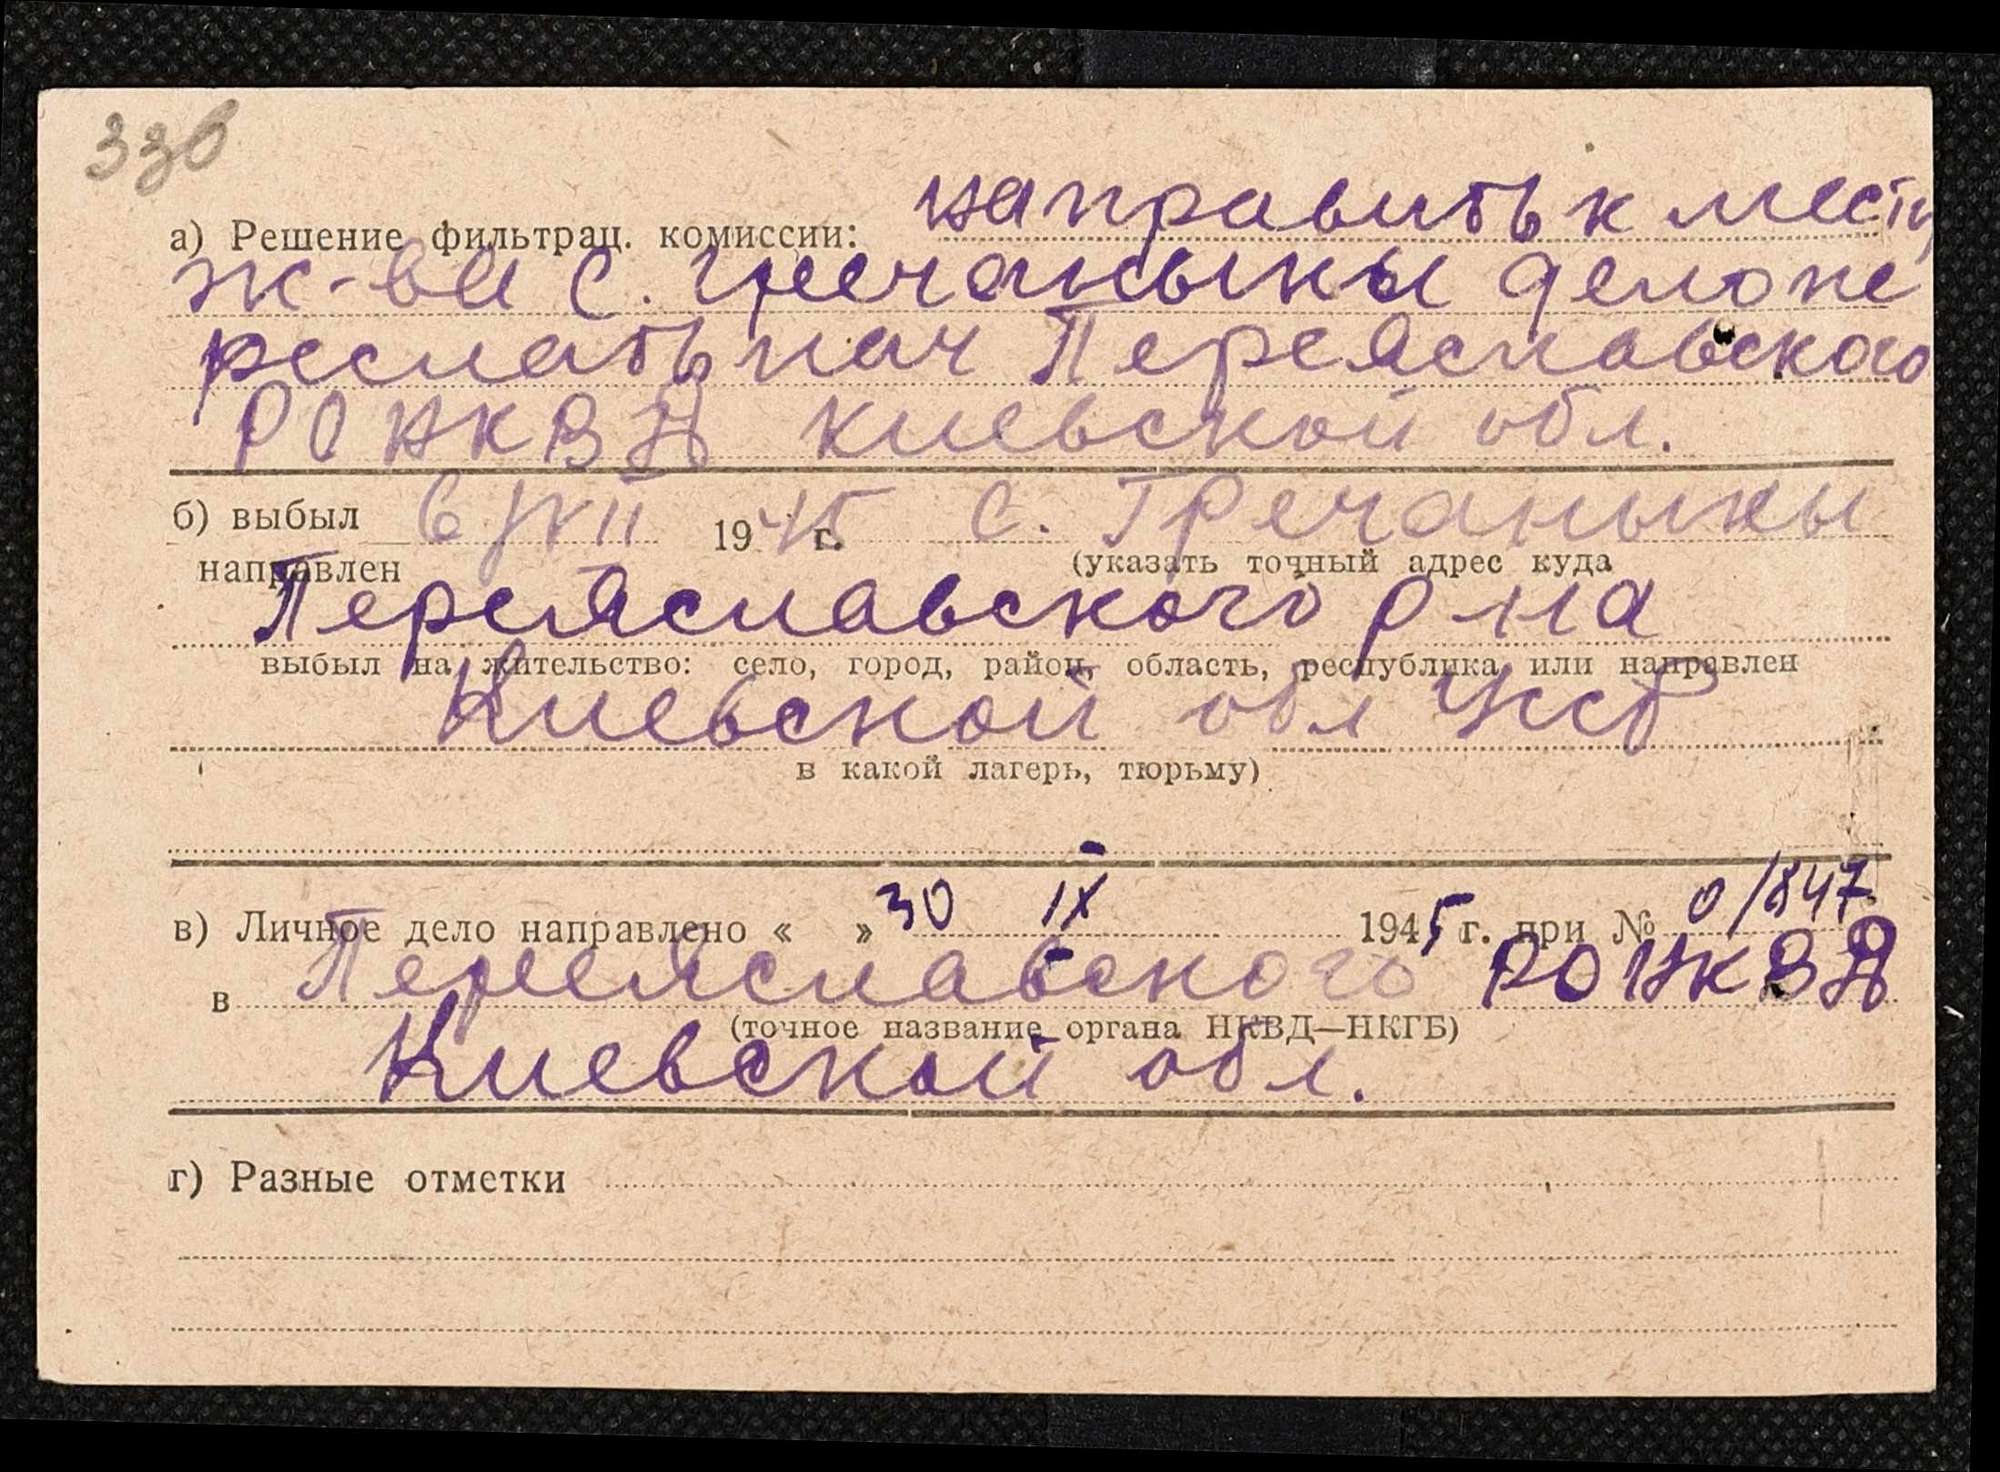 330
а) Решение фильтрац. комиссии: направить к месту
ж-ва с. Гречаныкы дело пе
реслать нач Переяславского
РОНКВД Киевской обл.
б) выбыл 6/VII 1945 г. с. Гречаныкы
направлен (указать точный адрес куда
Переяславского р-на
выбыл на жительство: село, город, район, область, республика или направлен
Киевской обл
в какой лагерь, тюрьму)
в) Личное дело направлено « » 30 IX 1945 г. при № 0/847
в Переяславского РОНКВД
(точное название органа НКВД—НКГБ)
Киевской обл.
г) Разные отметки